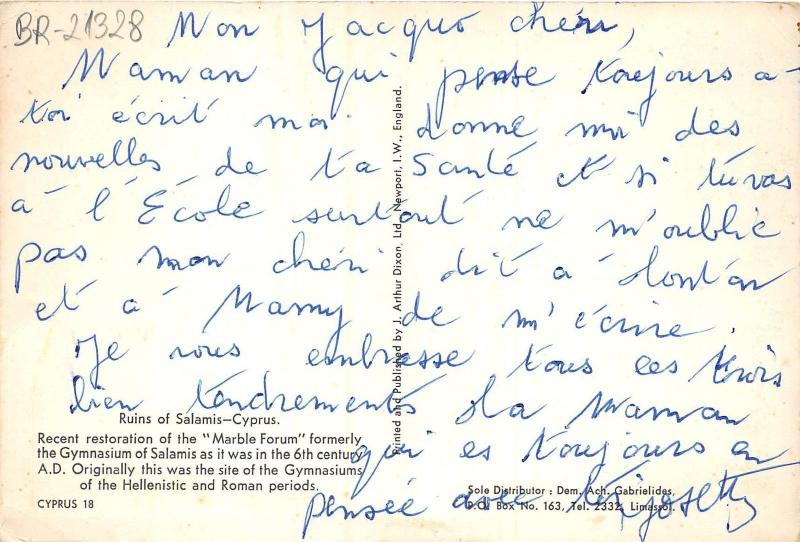 BR-21328
Mon Jacquo chéri,
Maman qui pense toujours a-
toi écrit moi donne moi des
nouvelles de ta santé et si tu vas
à l'École surtout ne m'oublie
pas mon chéri dit à
et à Mamy de m'écrire.
Je vous embrasse tous les trois
bien tendrements ta Maman
qui es toujours en
pensée avec toi
Printed and Published by J. Arthur Dixon, Ltd., Newport, I.W., England.
Ruins of Salamis—Cyprus.
Recent restoration of the "Marble Forum" formerly
the Gymnasium of Salamis as it was in the 6th century
A.D. Originally this was the site of the Gymnasiums
of the Hellenistic and Roman periods.
CYPRUS 18
Sole Distributor : Dem. Ach. Gabrielides,
P.O. Box No. 163, Tel. 2332, Limassol.